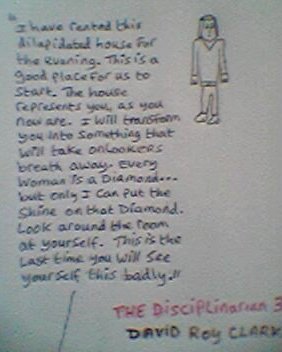 "I have rented this
dilapidated house for
the evening. This is a
good place for us to
start. The house
represents you, as you
now are. I will transform
you into something that
will take onlookers
breath away. Every
woman is a Diamond...
but only I can put the
shine on that Diamond.
Look around the room
at yourself. This is the
last time you will see
yourself this badly."
THE DISCIPLINARIAN 3
DAVID ROY CLARK